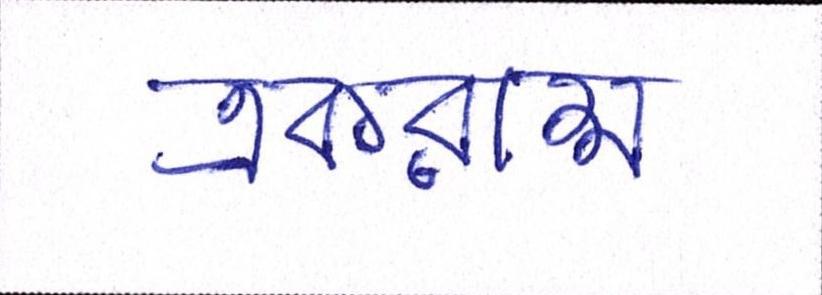 একরাম